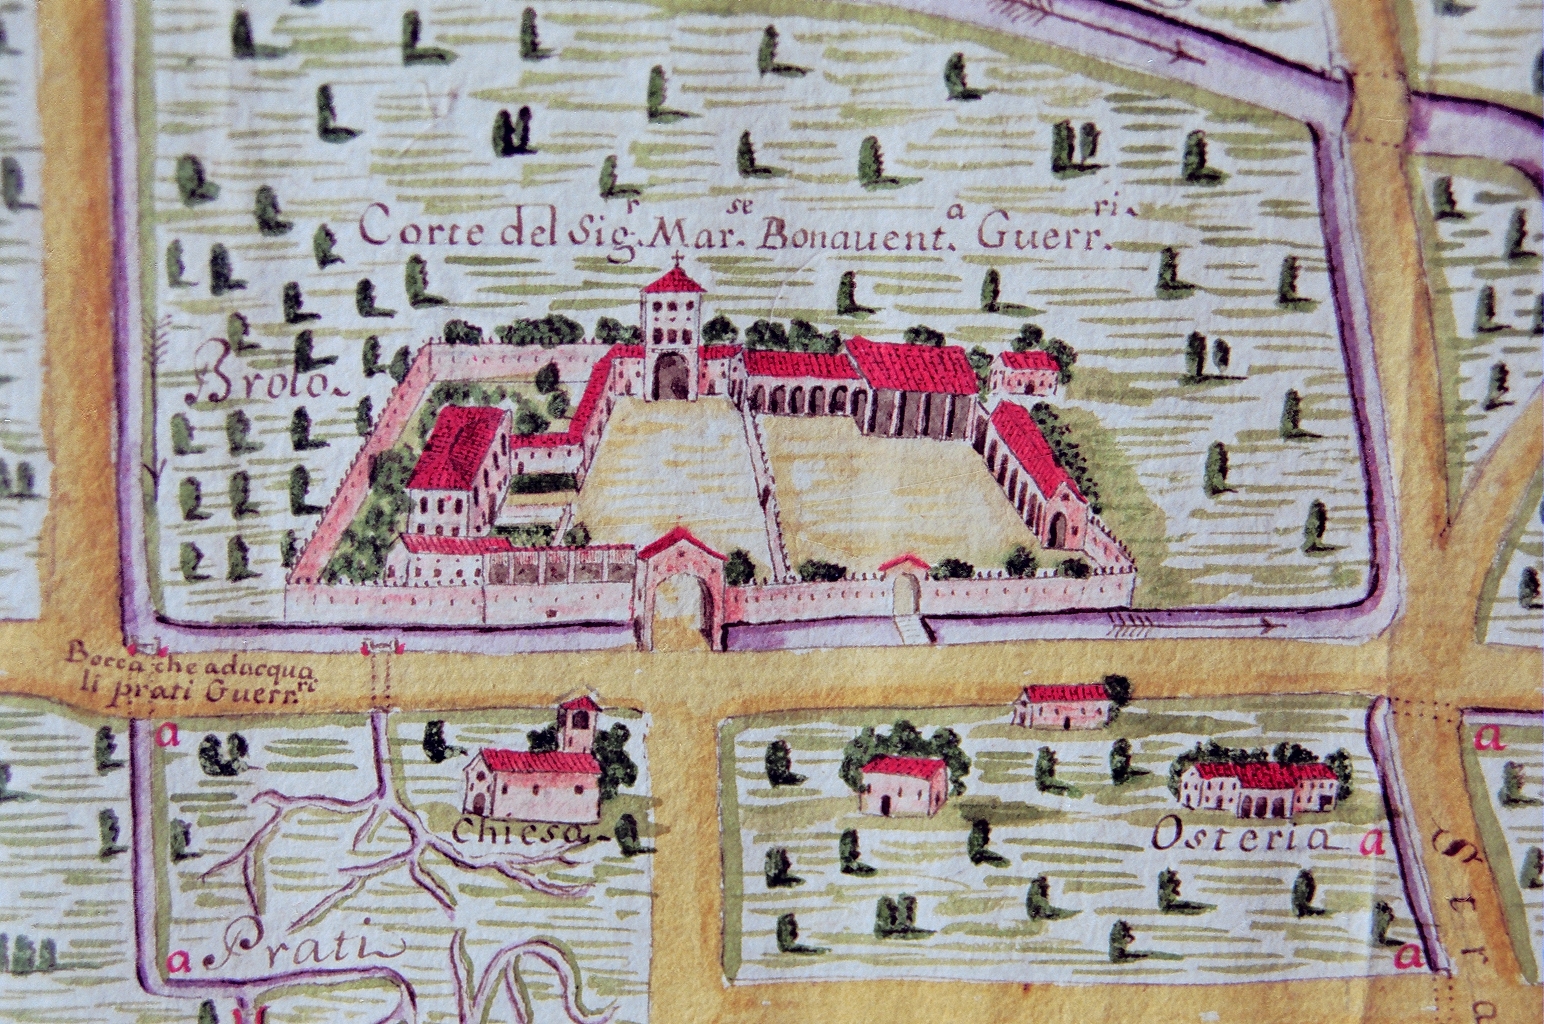 Corte del Sig.r Mar.se Bonauent.a Guerr.ri.
Brolo.
Bocca che adacqua
li prati Guerr.ri
a
a
Chiesa
Osteria
a
a
Prati
a
Stra